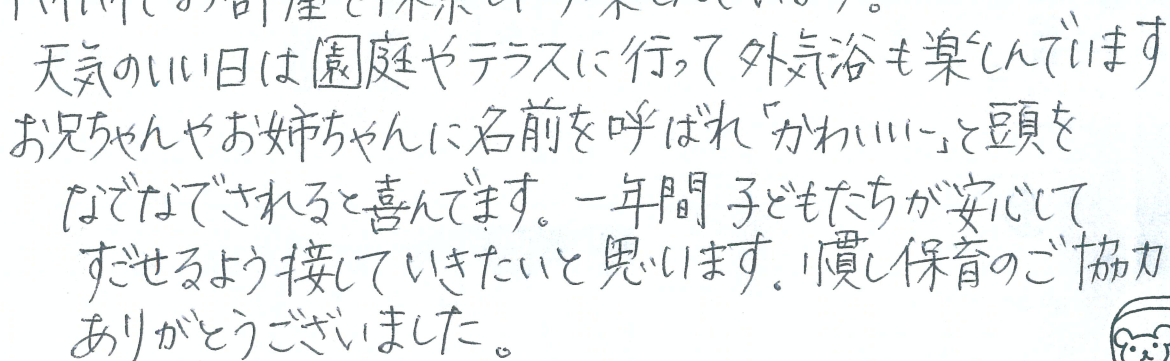 お部屋で
天気のいい日は園庭やテラスに行って外気浴も楽しんでいます
お兄ちゃんやお姉ちゃんに名前を呼ばれ「かわいいー」と頭を
なでなでされると喜んでます。一年間子どもたちが安心して
すごせるよう接していきたいと思います。慣し保育のご協力
ありがとうございました。